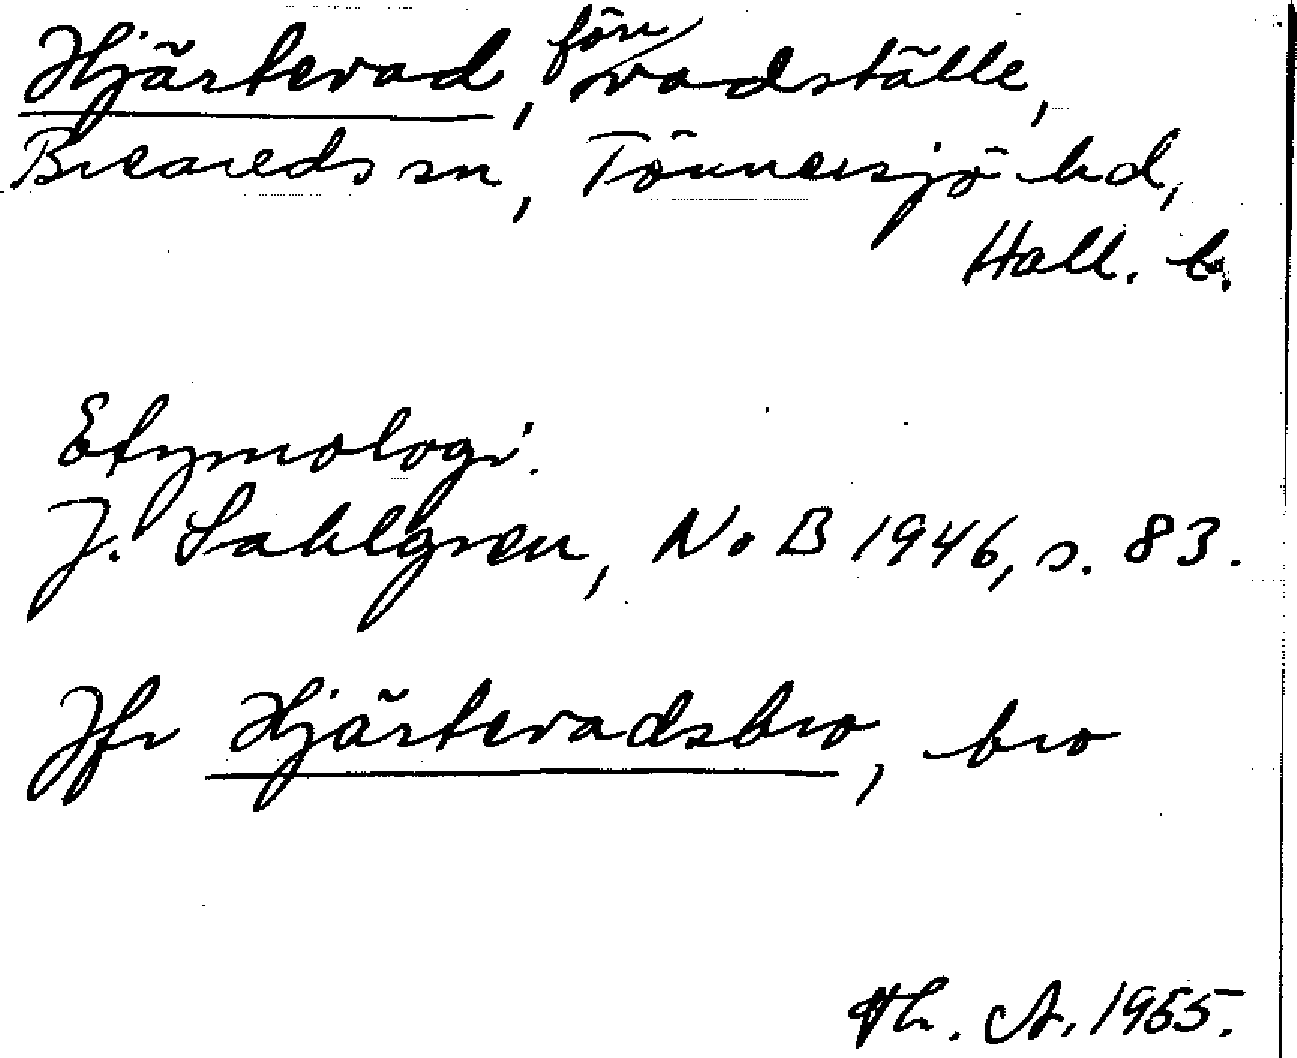 Hjärtevad, förn vadställe,
Breareds sn, Tönnersjö hd,
Hall. l.
Etymologi.
J. Sahlgren, NoB 1946, s. 83.
Jfr Hjärtevadsbro, bro
A. 1955.